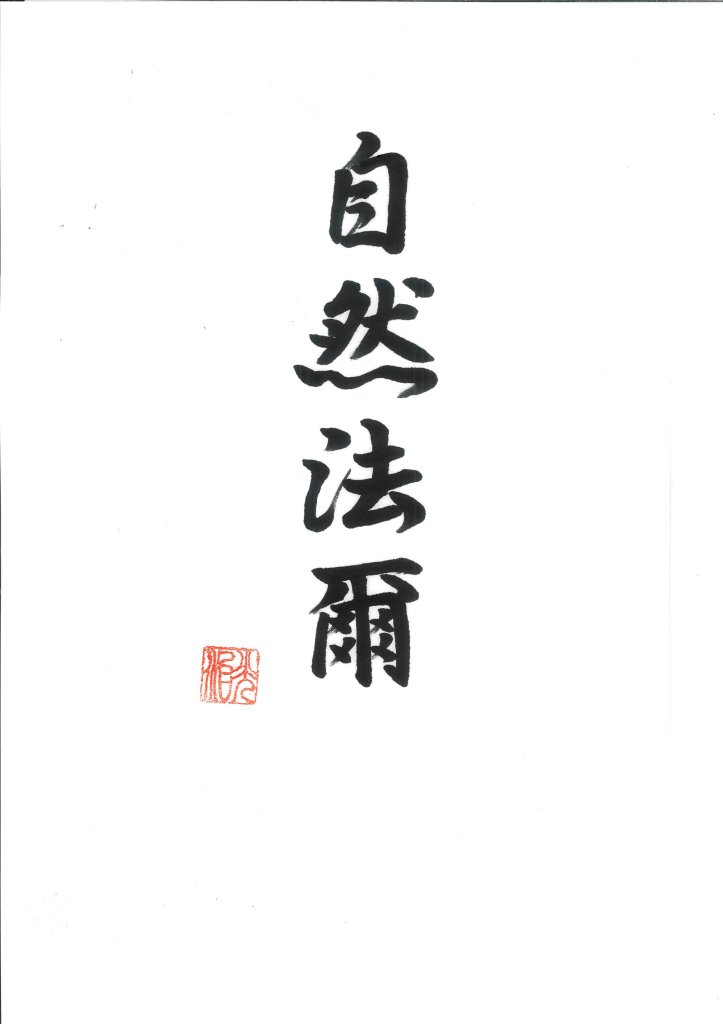 自然法爾